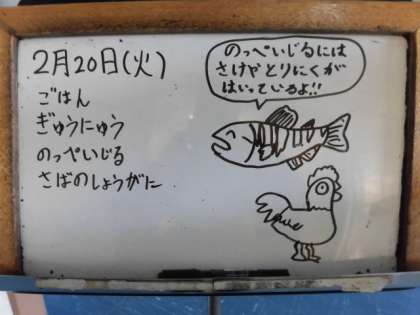 2月20日(火)
ごはん
ぎゅうにゅう
のっぺいじる
さばのしょうがに
のっぺいじるには
さけやとりにくが
はいっているよ!!